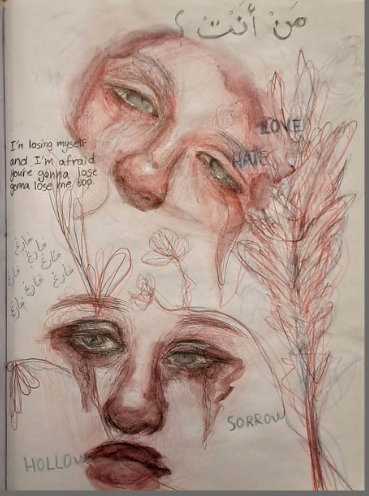 مَن أنْتَ ؟
LOVE
HATE
I'm losing myself
and I'm afraid
you're gonna lose
gonna lose me, too.
فارغ فارغ
فارغ فارغ
فارغ فارغ فارغ
فارغ
SORROW
HOLLOW